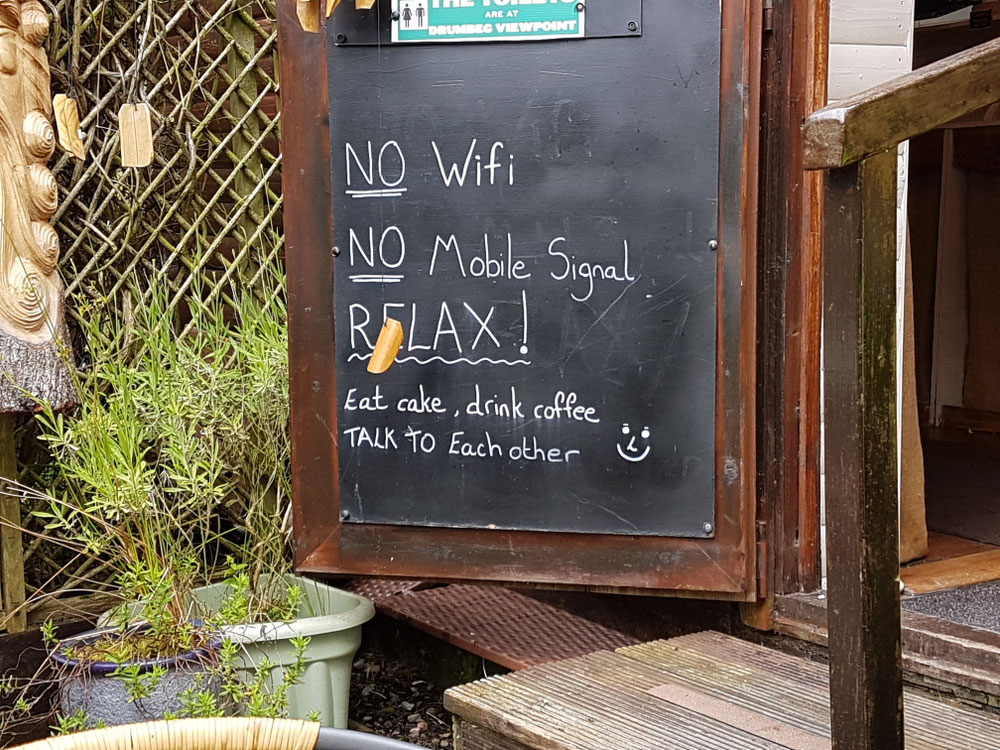 THE TOILETS
ARE AT
DRUMBEG VIEWPOINT
NO Wifi
NO Mobile Signal
RELAX!
Eat cake, drink coffee
TALK TO Each other